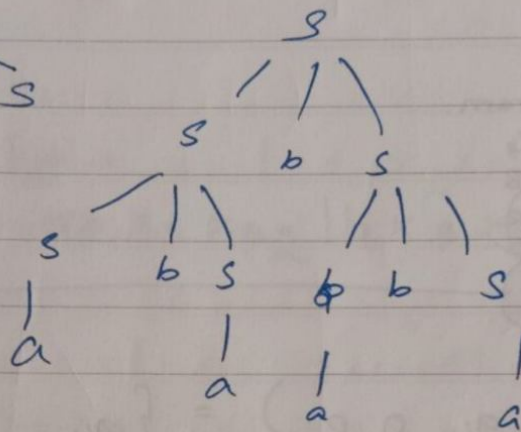 S
S
S b S
S b S b S
a a a a